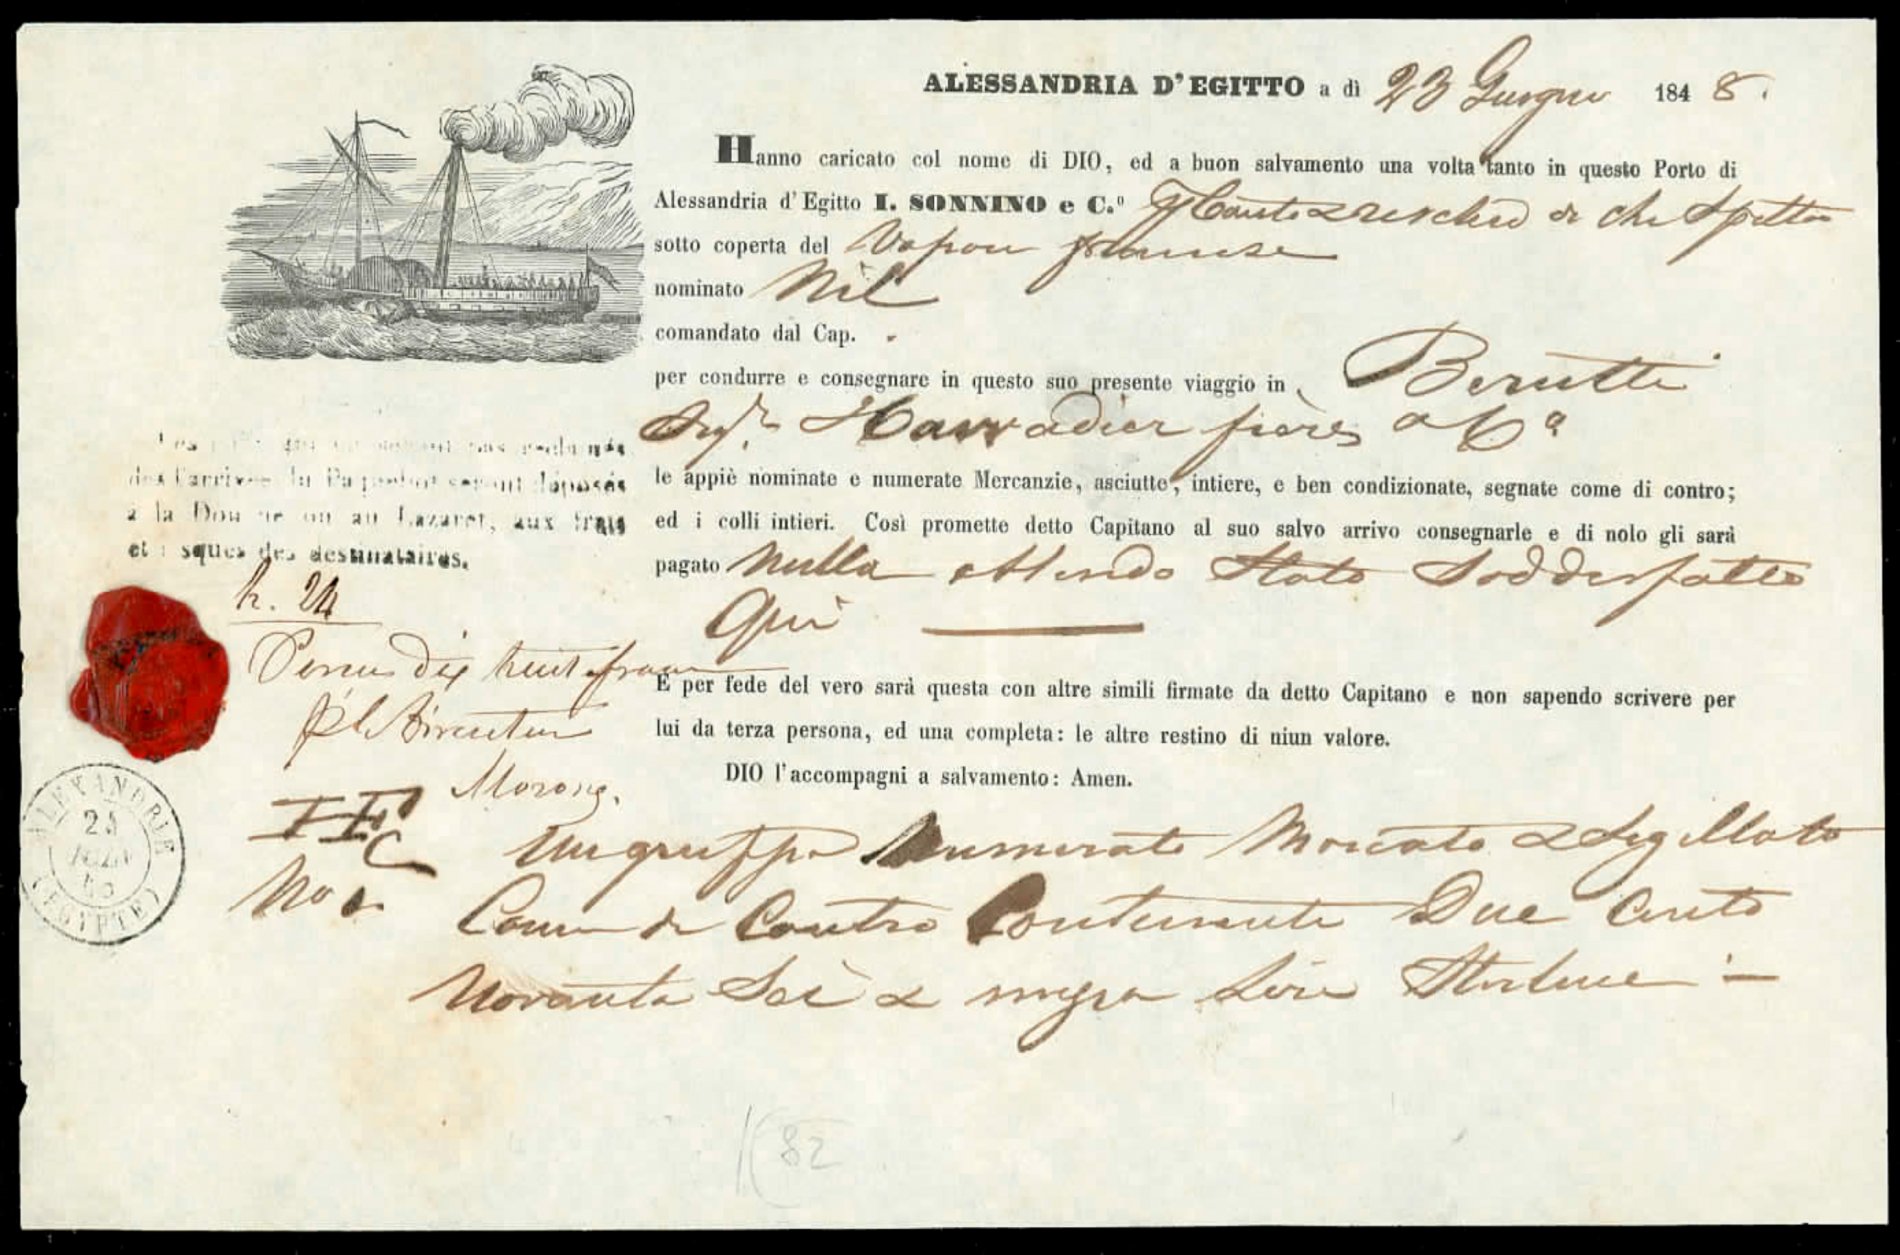 ALESSANDRIA D'EGITTO a dì 23 Giugno 1848.
Hanno caricato col nome di DIO, ed a buon salvamento una volta tanto in questo Porto di
Alessandria d'Egitto I. SONNINO e C.º Conto e rischio di chi spetta
sotto coperta del Vapore francese
nominato Nil
comandato dal Cap.
per condurre e consegnare in questo suo presente viaggio in Berutti
frères
le appiè nominate e numerate Mercanzie, asciutte, intiere, e ben condizionate, segnate come di contro;
ed i colli intieri. Così promette detto Capitano al suo salvo arrivo consegnarle e di nolo gli sarà
pagato Nulla essendo Stato Soddisfatto
Qui
E per fede del vero sarà questa con altre simili firmate da detto Capitano e non sapendo scrivere per
lui da terza persona, ed una completa: le altre restino di niun valore.
DIO l'accompagni a salvamento: Amen.
Un gruppo Numerato Marcato e Sigillato
Come di Contro Contenente Due Cento
Novanta Sei e mezza Lire Sterline
Les qui pas
des l'arrivée du Paquebot seront déposés
a la Douane ou au Lazaret, aux frais
et risques des destinataires.
24
dix huit francs
Directeur
ALEXANDRIE
(EGYPTE)
82